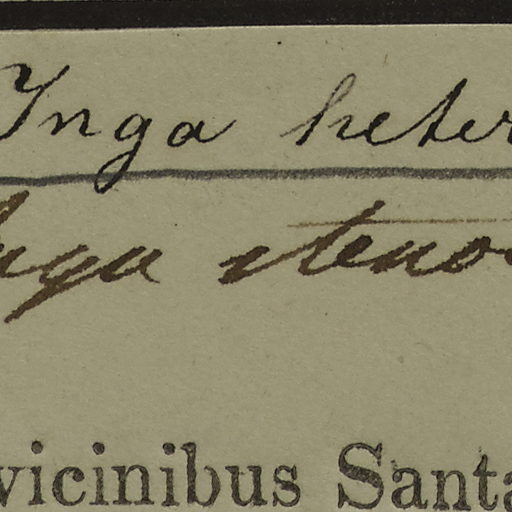 Inga heter
Inga steno
vicinibus Santa